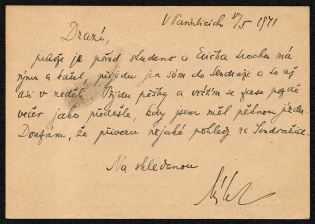 V Pardubicích 8/5 1941
Drazí,
protože je pořád studeno a Evička trochu má
rýmu a kašel, přijedu jen sám do Sendražic a to až
asi v neděli. Přijdu pěšky a vrátím se zase pozdě
večer jako předešle, kdy jsem měl pěknou jízdu.
Doufám, že přivezu nějaké pohledy na Sendražice.
Na shledanou